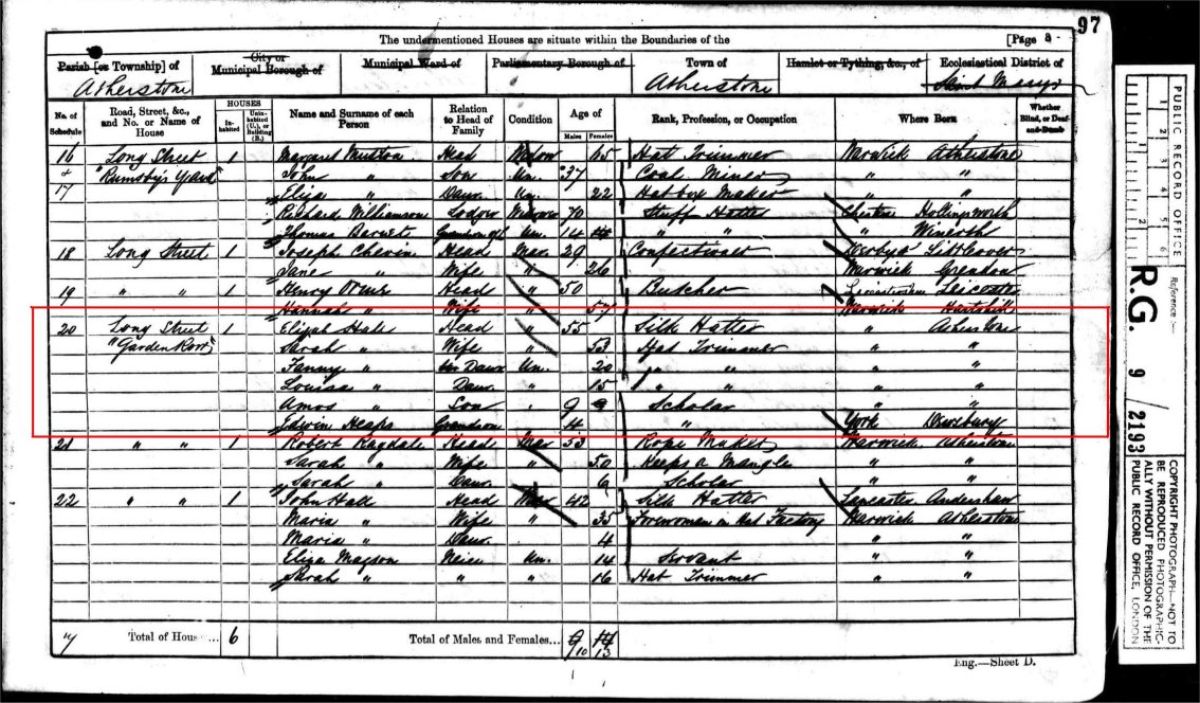 97
The undermentioned Houses are situate within the Boundaries of the
[Page 8
Parish [or Township] of
Atherstone
City or Municipal Borough of
Municipal Ward of
Parliamentary Borough of
Town of
Atherstone
Hamlet or Tything, &c., of
Ecclesiastical District of
Saint Marys
No. of Schedule
Road, Street, &c., and No. or Name of House
HOUSES
Inhabited
Uninhabited (U.), or Building (B.)
Name and Surname of each Person
Relation to Head of Family
Condition
Age of
Males
Females
Rank, Profession, or Occupation
Where Born
Whether Blind, or Deaf-and-Dumb
16 Long Street 1 Margaret Mutton Head Widow 65 Hat Trimmer Warwick Atherstone
"Rumsby's Yard" John " Son Un. 37 Coal Miner " "
17 Eliza " Daur. Un. 22 Hatbox Maker " "
Richard Williamson Lodger Widower 70 Stuff Hatter Chester Hollingsworth
Thomas Un. 14 " " "
18 Long Street 1 Joseph Head Mar. 29 Confectioner Derbys Littleover
Jane " Wife " 26 Warwick Grendon
19 " " 1 Henry Head " 50 Butcher Leicestershire Leicester
Hannah " Wife " 57 Warwick Hartshill
20 Long Street 1 Elijah Hall Head " 55 Silk Hatter " Atherstone
"Garden Row" Sarah " Wife " 53 Hat Trimmer " "
Fanny " Daur Un. 20 " " " "
Louisa " Daur. " 15 " " " "
Amos " Son 9 Scholar " "
Edwin Heaps Grandson 4 " York Dewsbury
21 " " 1 Robert Ragdale Head Mar 53 Rope Maker Warwick Atherstone
Sarah " Wife " 50 Keeps a Mangle " "
Sarah " Daur. 6 Scholar " "
22 " " 1 John Hall Head Mar 42 Silk Hatter Lancaster
Maria " Wife " 35 Forewoman in Hat Factory Warwick Atherstone
Maria " Daur. 4 " "
Eliza Mayson Neice Un. 14 Servant " "
Sarah " " " 16 Hat Trimmer " "
Total of Houses... 6
Total of Males and Females... 9 14
10 13
Eng.—Sheet D.
PUBLIC RECORD OFFICE
Reference :—
R.G. 9 / 2193
COPYRIGHT PHOTOGRAPH—NOT TO BE REPRODUCED PHOTOGRAPHICALLY WITHOUT PERMISSION OF THE PUBLIC RECORD OFFICE, LONDON